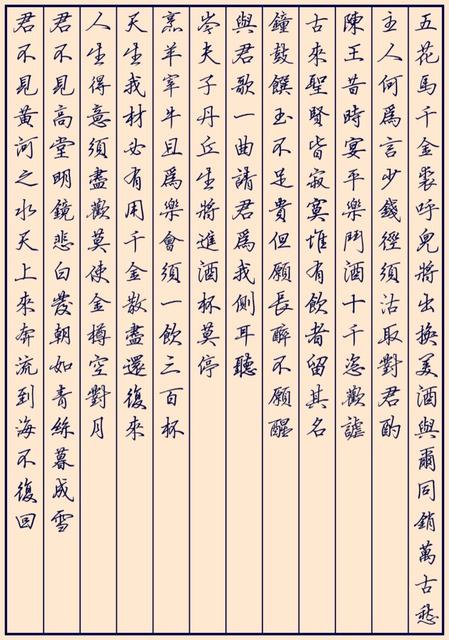 君不見黃河之水天上來奔流到海不復回
君不見高堂明鏡悲白發朝如青絲暮成雪
人生得意須盡歡莫使金樽空對月
天生我材必有用千金散盡還復來
烹羊宰牛且爲樂會須一飲三百杯
岑夫子丹丘生將進酒杯莫停
與君歌一曲請君爲我側耳聽
鐘鼓饌玉不足貴但願長醉不願醒
古來聖賢皆寂寞惟有飲者留其名
陳王昔時宴平樂鬥酒十千恣歡謔
主人何爲言少錢徑須沽取對君酌
五花馬千金裘呼兒將出換美酒與爾同銷萬古愁